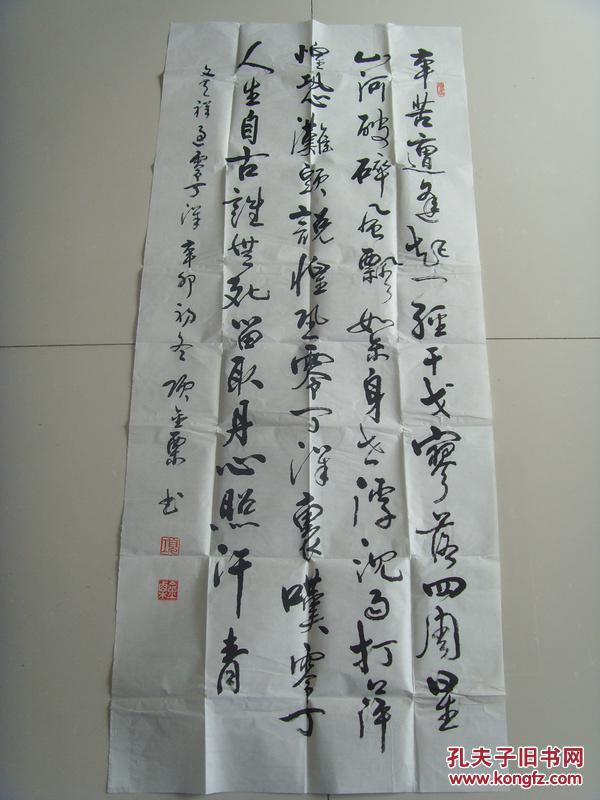 辛苦遭逢起一經干戈寥落四周星
山河破碎風飄絮身世浮沉雨打萍
惶恐灘頭說惶恐零丁洋裏嘆零丁
人生自古誰無死留取丹心照汗青
文天祥過零丁洋 辛卯初冬 項金粟 书
孔夫子旧书网
www.kongfz.com